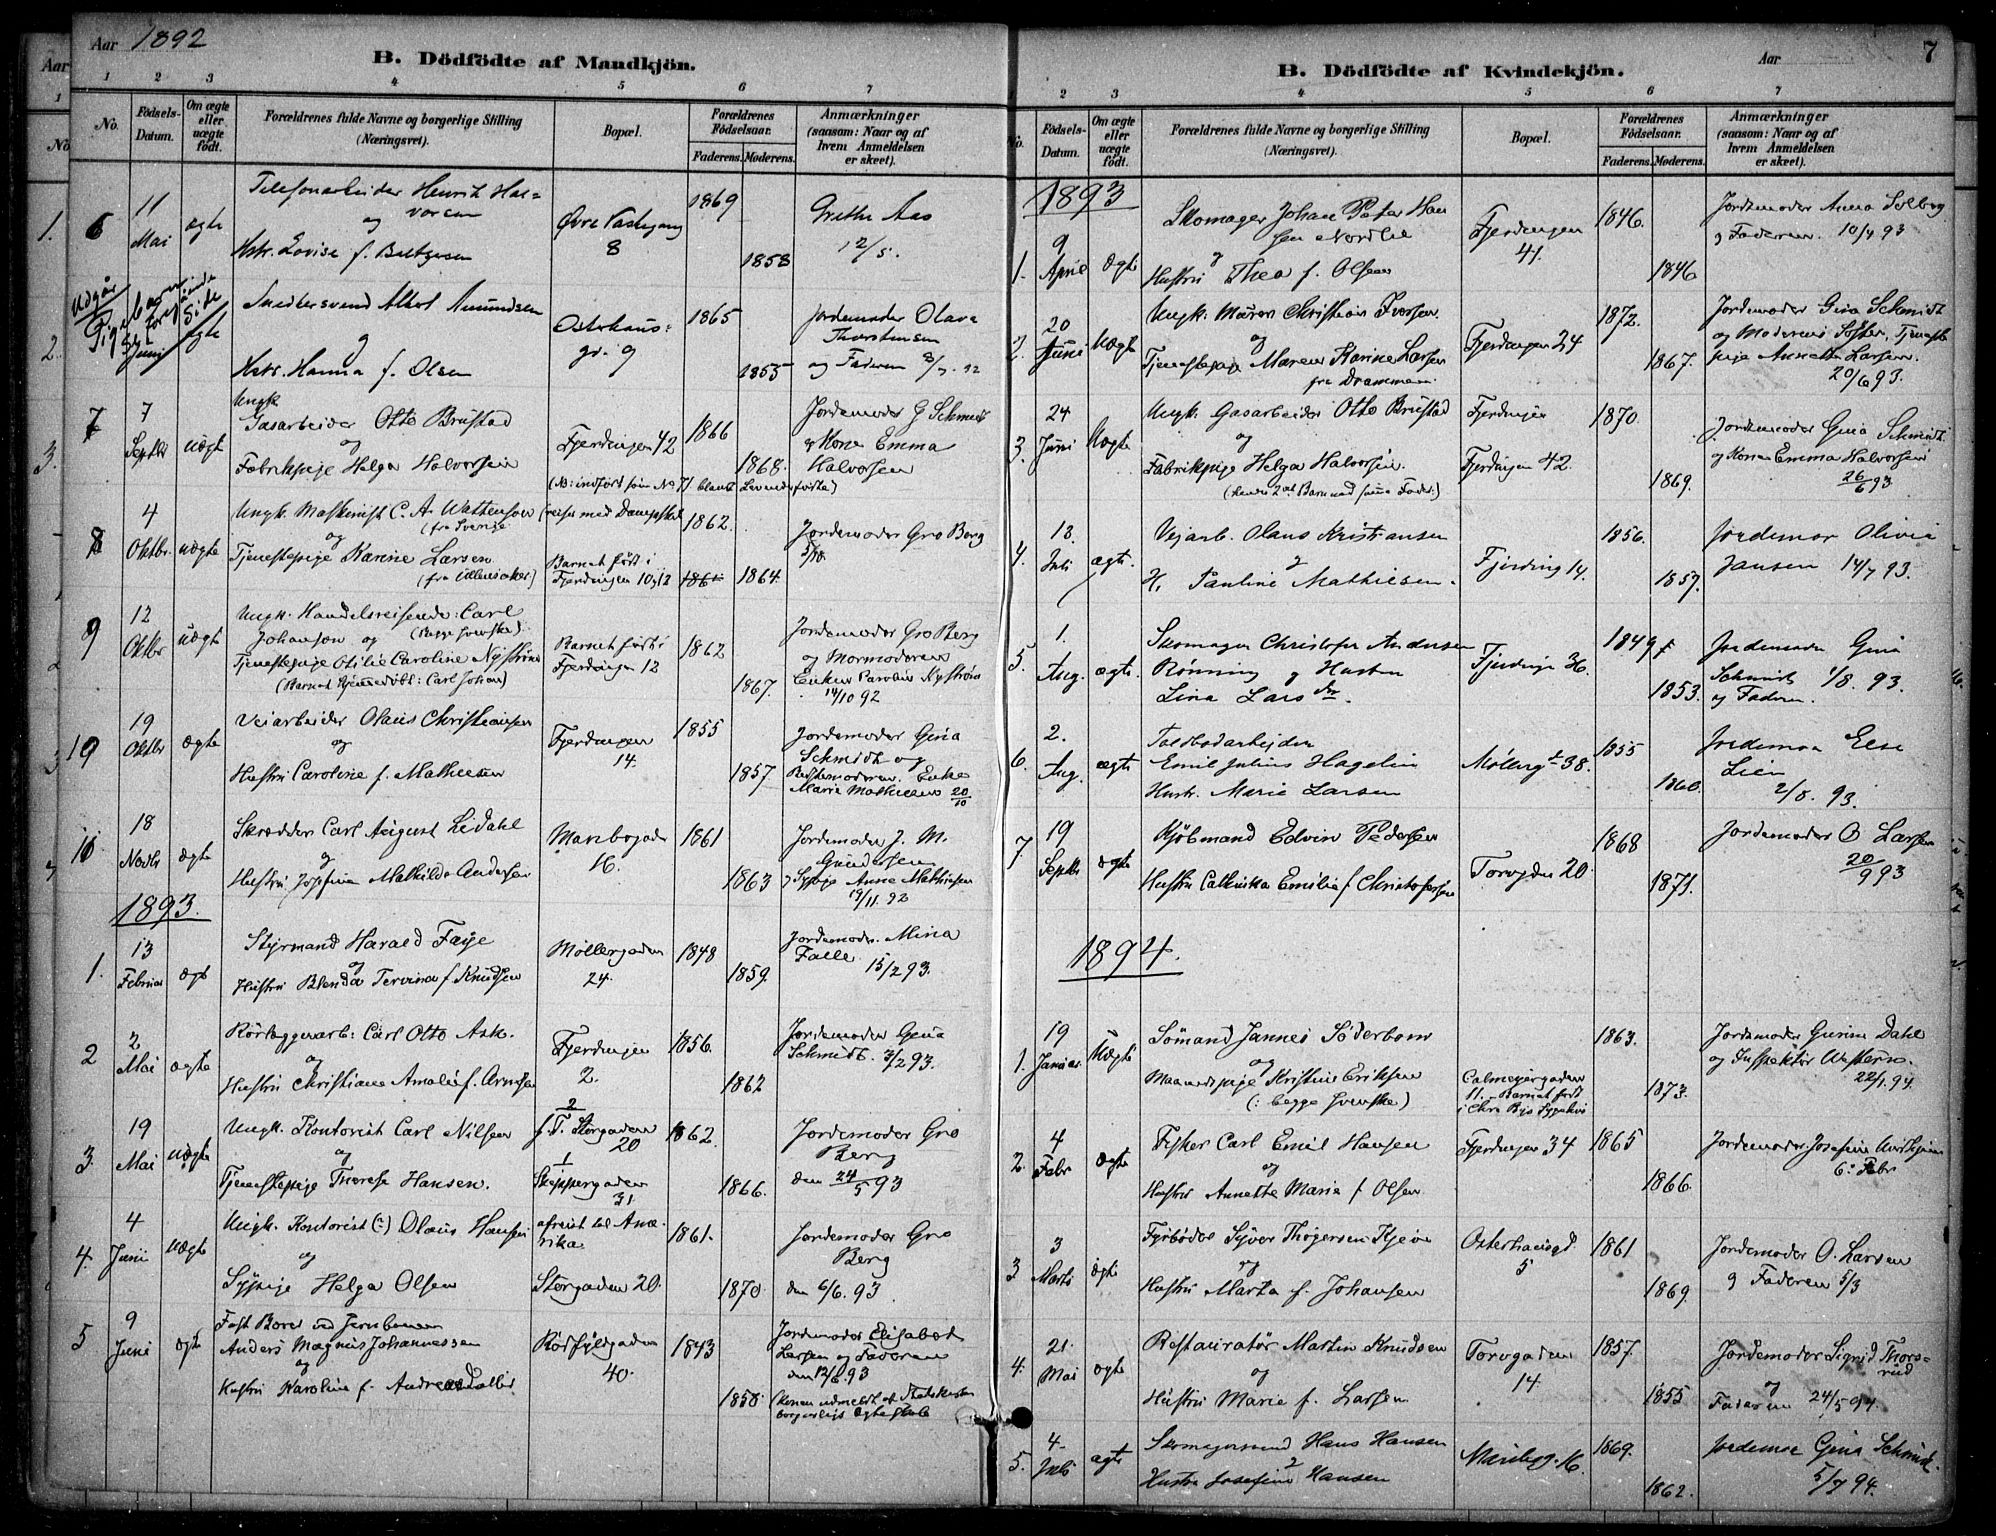 Aar 1892
B. Dödfödte af Mandkjön.
1 2 3 4 5 6 7
No.
Födsels-Datum.
Om ægte eller uægte født.
Forældrenes fulde Navne og borgerlige Stilling (Næringsvei).
Bopæl.
Forældrenes Födselsaar.
Faderens. Moderens.
Anmærkninger (saasom: Naar og af hvem Anmeldelsen er skeet).
6 11 Mai ægte
Telefonarbeider Henrik Hal=
vorsen
og
Hstr. Lovise f. Baltzersen
8
1869
1858
Grethe Aas
12/5.
Udgår
Pigebarn
Side
Juni ægte
Smedesvend Albert Amundsen
og
Hstr. Hanna f. Olsen
Osterhaus=
gd. 9
1865
1855
Jordemoder Olava
Thorstensen
og Faderen 8/7. 92
7 7 Septbr uægte
Ungk.
Gasarbeider Otto Brustad
og
Fabrikpige Helga Halvorsen
Fjerdingen 42
(NB: indført som No 71 blandt Levendefødte)
1866
1868.
Jordemoder G Schmidt
& Kone Emma
Halvorsen
8 4 Oktbr. uægte
Ungk. Maskinist C. A. Wattenson
(fra Sverige
og
Tjenestepige Karine Larsen
(fra Ullensaker)
(reiser med Dampskib
Barnet født i
Fjerdingen 10g12
1862.
1864.
Jordemoder Gro Berg
5/10.
9 12 Oktbr uægte
Ungk. Handelsreisende: Carl
Johanson og (Begge svenske)
Tjenestepige Otilie Caroline Nyström
(Barnet hjemmedöbt: Carl Johan)
Barnet født i
Fjerdingen 12
1862
1867.
Jordemoder Gro Berg
og Mormoderen
Enken Caroline Nyström
14/10 92
10 19 Oktbr ægte
Veiarbeider Olaus Christiansen
og
Hustri Caroline f. Mathiesen
Fjerdingen
14.
1855
1857
Jordemoder Gina
Schmidt og
Bedstemoderen Enke
Marie Mathiesen 20/10
11 18 Novbr ægte
Skrædder Carl August Lidahl
og
Hustri Josefine Mathilde Andersen
Maribogaden
16.
1861
1863
Jordemoder J. M.
Gundersen
Sypige Anna Mathiesen
19/11.92
1893.
1. 13 Februar ægte
Styrmand Harald Faye
og
Hustri Blenda Tervina f. Knudsen
Möllergaden
24.
1848
1859.
Jordemoder. Mina
Falle
15/2 93.
2 2 Mai ægte
Rörlæggerarb: Carl Otto Ask.
og
Hustri Christiane Amalie f. Arnesen
Fjerdingen
2.
1856.
1862
Jordemoder Gina
Schmidt. 3/2 93.
3. 19 Mai uægte
Ungk. Kontorist Carl Nilsen
og
Tjenestepige Therese Hansen.
f. T. Storgaden
20
Skippergaden
31
1862.
1866.
Jordemoder Gro
Berg
den 24/5 93
4. 4 Juni uægte
Ungk. Kontorist (:) Olaus Hansen
og
Sypige Helga Olsen
afreist til Ame=
rika.
Storgaden 20.
1861.
1870
Jordemoder Gro
Berg
den 6/6. 93
5 9 Juni ægte
Anders Magnus Johannessen
og
Hustri Karoline f.
Rödfyldgaden
40.
1843
1858.
Jordemoder Elisabet
Larsen og Faderen
den 12/6.93
(Konen udmeldt af Statskirken
borgerligt Ægteskab
Aar 7
B. Dödfödte af Kvindekjön.
1 2 3 4 5 6 7
No.
Födsels-Datum.
Om ægte eller uægte födt.
Forældrenes fulde Navne og borgerlige Stilling (Næringsvei).
Bopæl.
Forældrenes Födselsaar.
Faderens. Moderens.
Anmærkninger (saasom: Naar og af hvem Anmeldelsen er skeet).
1893
1. 9 April Ægte
Skomager Johan Peter Han
sen Nordlie
og
Hustri Thea f. Olsen
Fjerdingen
41.
1846.
1846
Jordemoder Anna Solberg
og Faderen. 10/4 93
2. 20 Juni Uægte
Ungk. Murer Christian Iversen.
og
Tjenestepige Maren Karine Larsen
fra Drammen.
Fjerdingen 24
1872.
1867.
Jordemoder Gina Schmidt
og Moderens Söster, Tjeneste
pige Annette Larsen.
20/6 93.
3. 24 Juni Uægte
Ungk. Gasarbeider Otto Brustad
og
Fabrikpige Helga Halvorsen.
(hendes 2det Barn med samme Fader.)
Fjerdingen
Fjerdingen 42.
1870.
1869.
Jordemoder Gina Schmidt
og Konen Emma Halvorsen
26/6 93
4. 13. Juli ægte.
Vejarb. Olaus Kristiansen
og
H. Pauline Mathiesen.
Fjerding 14.
1856.
1857.
Jordemor Olivia
Jansen 14/7 93.
5. 1. Aug. ægte.
Skomager Christofer Andersen
Rönning og Hustru
Lina Larsdtr
Fjerdinge 36.
1849
1853.
Jordemoder Gina
Schmidt 1/8. 93.
og Faderen.
6. 2. Aug. ægte
Toldbodarbejder
Emil Julius Hagelin
Hustr. Marie Larsen
Möllergt 38.
1855
1860.
Jordemor Else
Lien
2/8. 93.
7. 19 Septbr ægte
Kjöbmand Edvin Pedersen
Hustri Cathinka Emilie f Christofersen
Torvgden 20.
1868
1871.
Jordemoder O Larsen
20/9 93
1894.
1. 19 Januar Uægte
Sömand Jannes Söderbom
og
Maanedspige Kristine Eriksen
(: begge svenske)
Calmeyergaden
11. - Barnet født
i Chra Bys Sygehus
1863.
1873.
Jordemoder Gurine Dahl
og Inspektör Western.
22/1.94.
2. 4 Febr ægte
Fisker Carl Emil Hansen
og
Hustri Annette Marie f Olsen
Fjerdingen 34
1865
1866.
Jordemoder Josefine
6. Febr
3 3 Marts ægte
Fyrböder Syver Thögersen
og
Hustri Marta f. Johansen
Osterhausgd.
5
1861
1869.
Jordemoder O. Larsen
og Faderen 5/3
4. 21. Mai ægte
Restauratör Martin Knudsen
og
Hustri Marie f. Larsen
Torvgaden
14.
1857.
1855
Jordemoder Sigrid Thors=
rud
og
Faderen 24/5 94.
5. 4. Juli ægte
Skomagersvend Hans Hansen
og
Hustru Josefine Hansen
Maribog. 16.
1869.
1862.
Jordemor Gina Schmidt.
5/7 94.